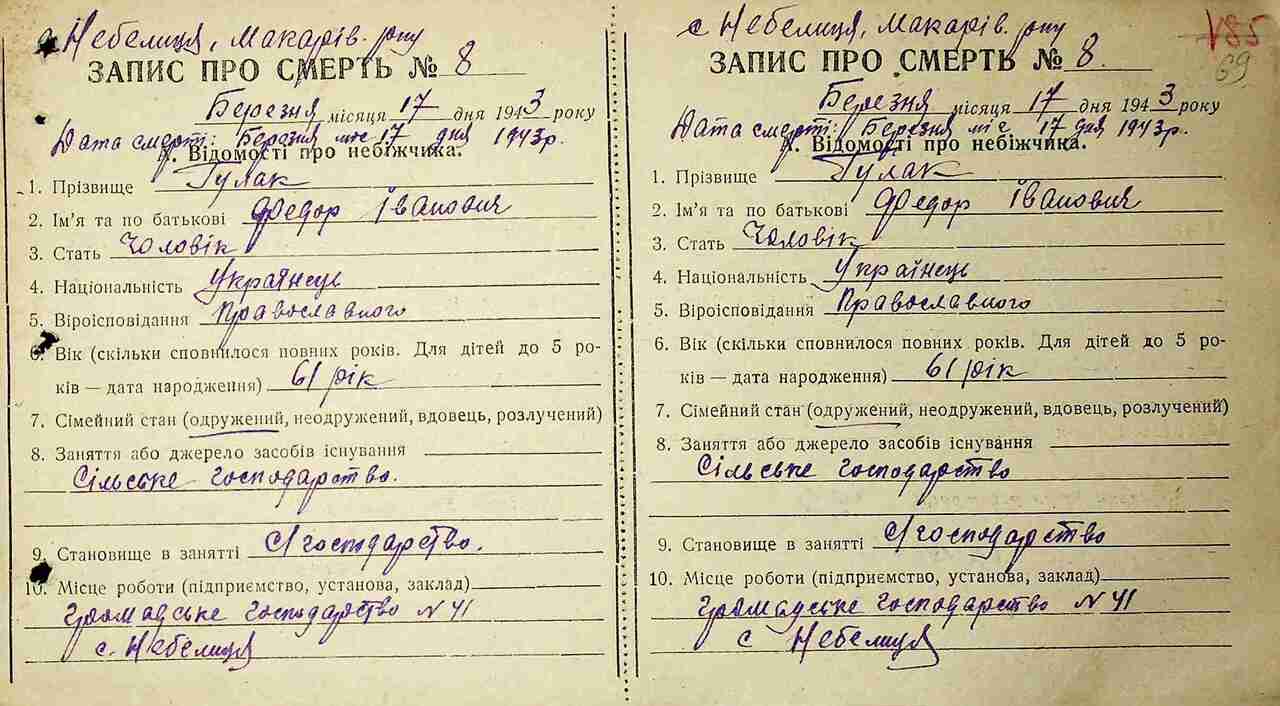 с Небелиця, Макарів. р-ну
ЗАПИС ПРО СМЕРТЬ № 8
Березня місяця 17 дня 1943 року
Дата смерті: Березня міс 17 дня 1943 р.
І. Відомості про небіжчика.
1. Прізвище Гулак
2. Ім'я та по батькові Федор Іванович
3. Стать Чоловік
4. Національність Українець
5. Віроісповідання Православного
6. Вік (скільки сповнилося повних років. Для дітей до 5 ро-
ків — дата народження) 61 рік
7. Сімейний стан (одружений, неодружений, вдовець, розлучений)
8. Заняття або джерело засобів існування
Сільське господарство.
9. Становище в занятті С/господарство.
10. Місце роботи (підприємство, установа, заклад)
Громадське господарство N 41
с. Небелиця
с Небелиця, Макарів. р-ну
V85
69
ЗАПИС ПРО СМЕРТЬ № 8.
Березня місяця 17 дня 1943 року
Дата смерті: Березня міс 17 дня 1943 р.
І. Відомості про небіжчика.
1. Прізвище Гулак
2. Ім'я та по батькові Федор Іванович
3. Стать Чоловік
4. Національність Українець
5. Віроісповідання Православного
6. Вік (скільки сповнилося повних років. Для дітей до 5 ро-
ків — дата народження) 61 рік
7. Сімейний стан (одружений, неодружений, вдовець, розлучений)
8. Заняття або джерело засобів існування
Сільське господарство
9. Становище в занятті С/господарство
10. Місце роботи (підприємство, установа, заклад)
Громадське господарство N 41
с Небелиця